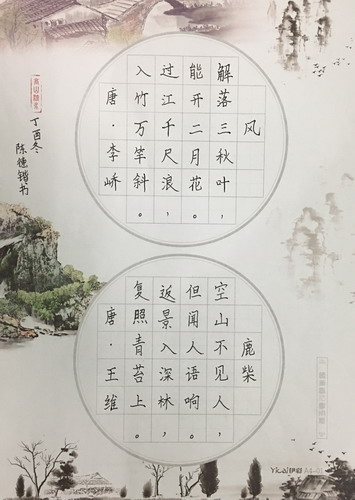 风
解落三秋叶，
能开二月花。
过江千尺浪，
入竹万竿斜。
唐·李峤
丁酉冬
鹿柴
空山不见人，
但闻人语响。
返景入深林，
复照青苔上。
唐·王维